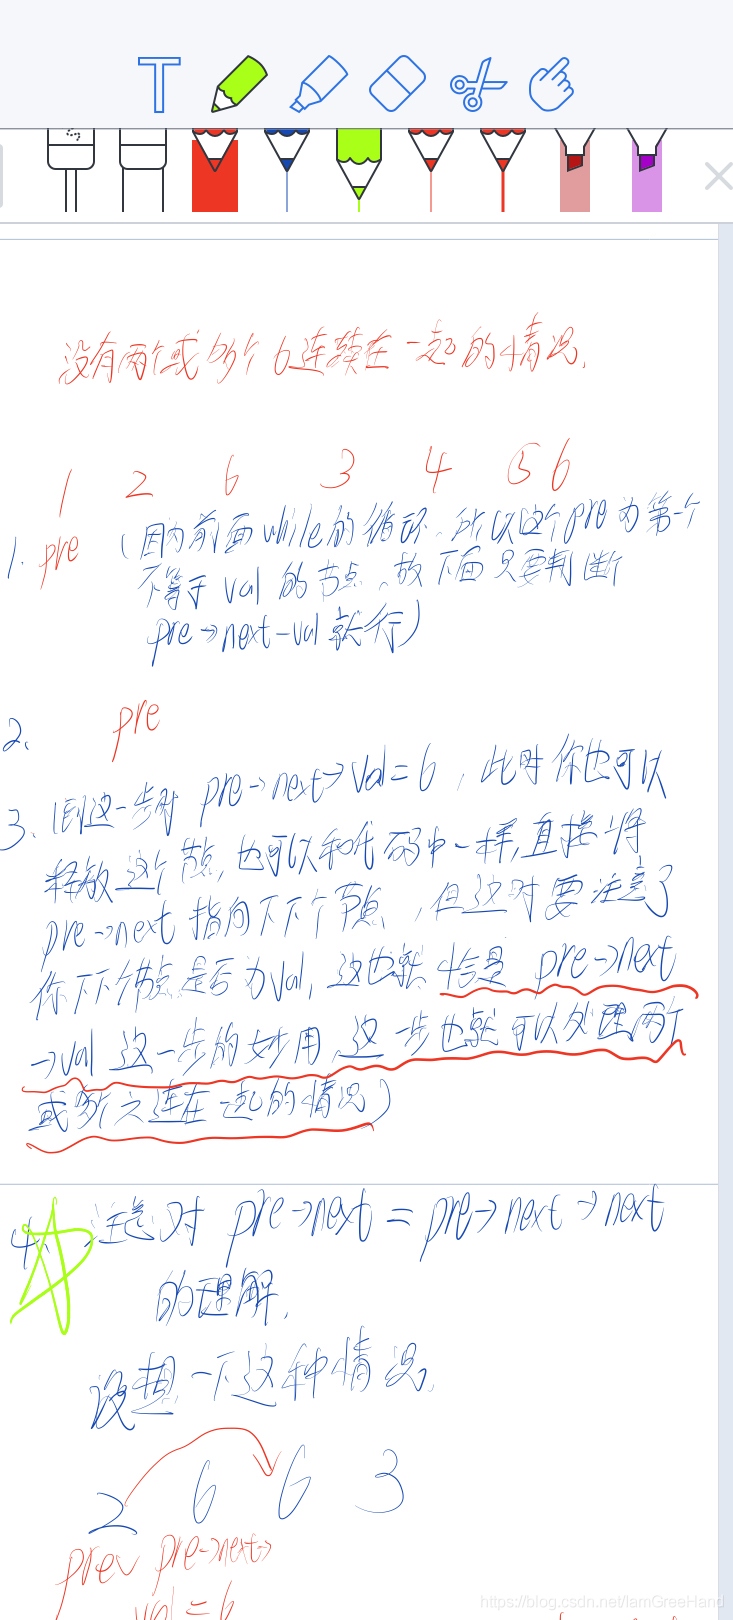 没有两个或多个6连续在一起的情况.
1 2 6 3 4 5 6
1. pre (因为前面while的循环,所以这个pre为第一个
不等于val的节点,故下面只要判断
pre->next-val就行)
2. pre
3. (到这一步时 pre->next->val=6,此时你也可以
释放这个节点,也可以和代码中一样,直接将
pre->next指向下下个节点,但这时要注意了
你下下个节点是否为val,这也就恰是 pre->next
->val 这一步的妙用,这一步也就可以处理两个
或多个连在一起的情况)
4. 注意对 pre->next = pre->next->next
的理解.
设想一下这种情况.
2 6 6 3
prev pre->next->
val=6
https://blog.csdn.net/IamGreeHand